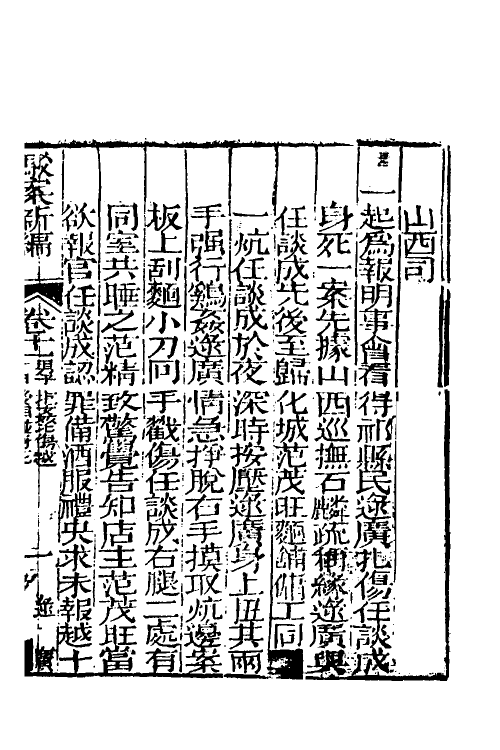 山西司
一起爲報明事會看得祁縣民逯廣扎傷任談成
身死一案先據山西巡撫石麟疏稱緣逯廣與
任談成先後至歸化城范茂旺麵鋪傭工同
一炕任談成於夜深時按壓逯廣身上扭其兩
手强行鷄姦逯廣情急掙脫右手摸取炕邊案
板上刮麵小刀回手戳傷任談成右腿二處有
同室共睡之范精致驚覺告知店主范茂旺當
欲報官任談成認罪備酒服禮央求未報越十
駁案新編 卷十一
一 逯廣